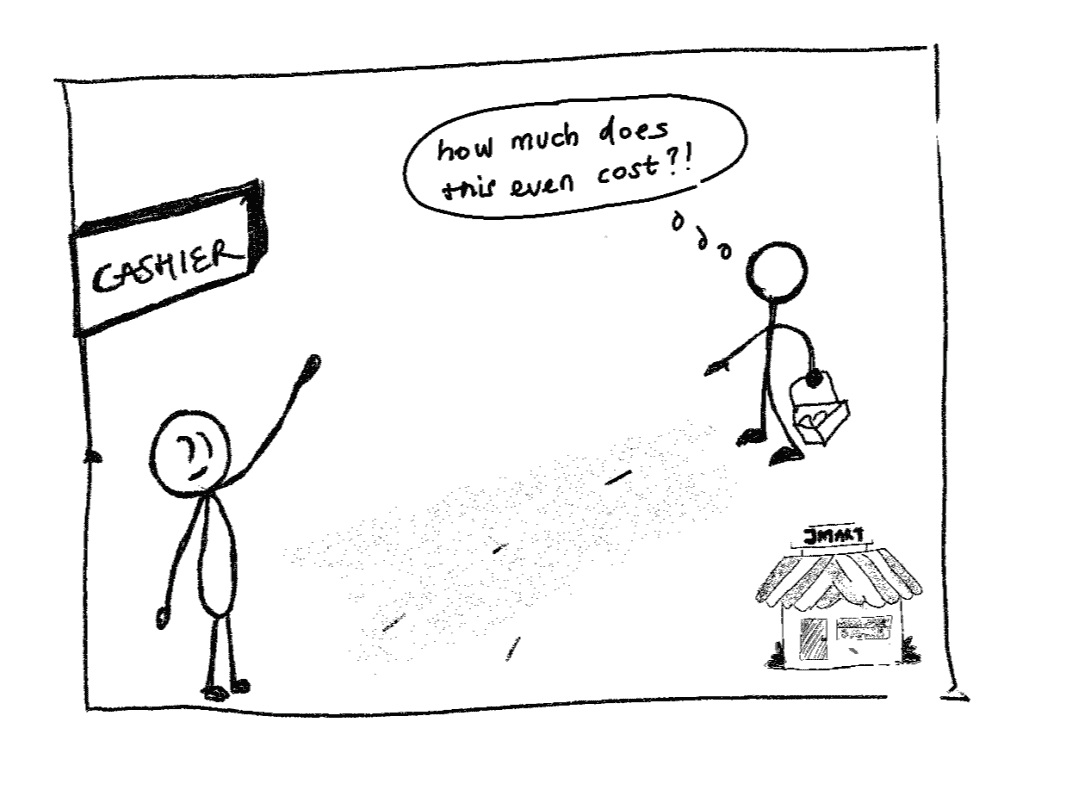 how much does
this even cost?!
CASHIER
JMART